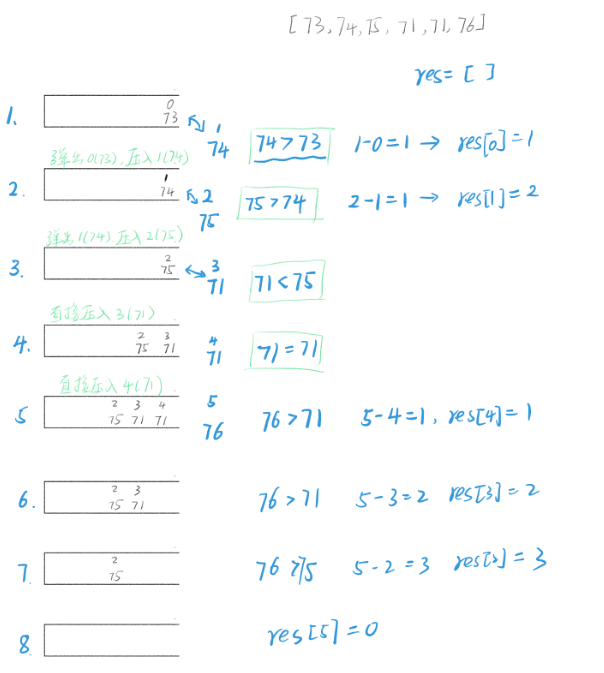 [73,74,75,71,71,76]
res=[ ]
1. 0
73 1
74 74>73 1-0=1 → res[0]=1
弹出0(73),压入1(74)
2. 1
74 2
75 75>74 2-1=1 → res[1]=2
弹出1(74)压入2(75)
3. 2
75 3
71 71<75
直接压入3(71)
4. 2 3
75 71 4
71 71=71
直接压入4(71).
5 2 3 4
75 71 71 5
76 76>71 5-4=1, res[4]=1
6. 2 3
75 71 76>71 5-3=2 res[3]=2
7. 2
75 76>75 5-2=3 res[2]=3
8 res[5]=0